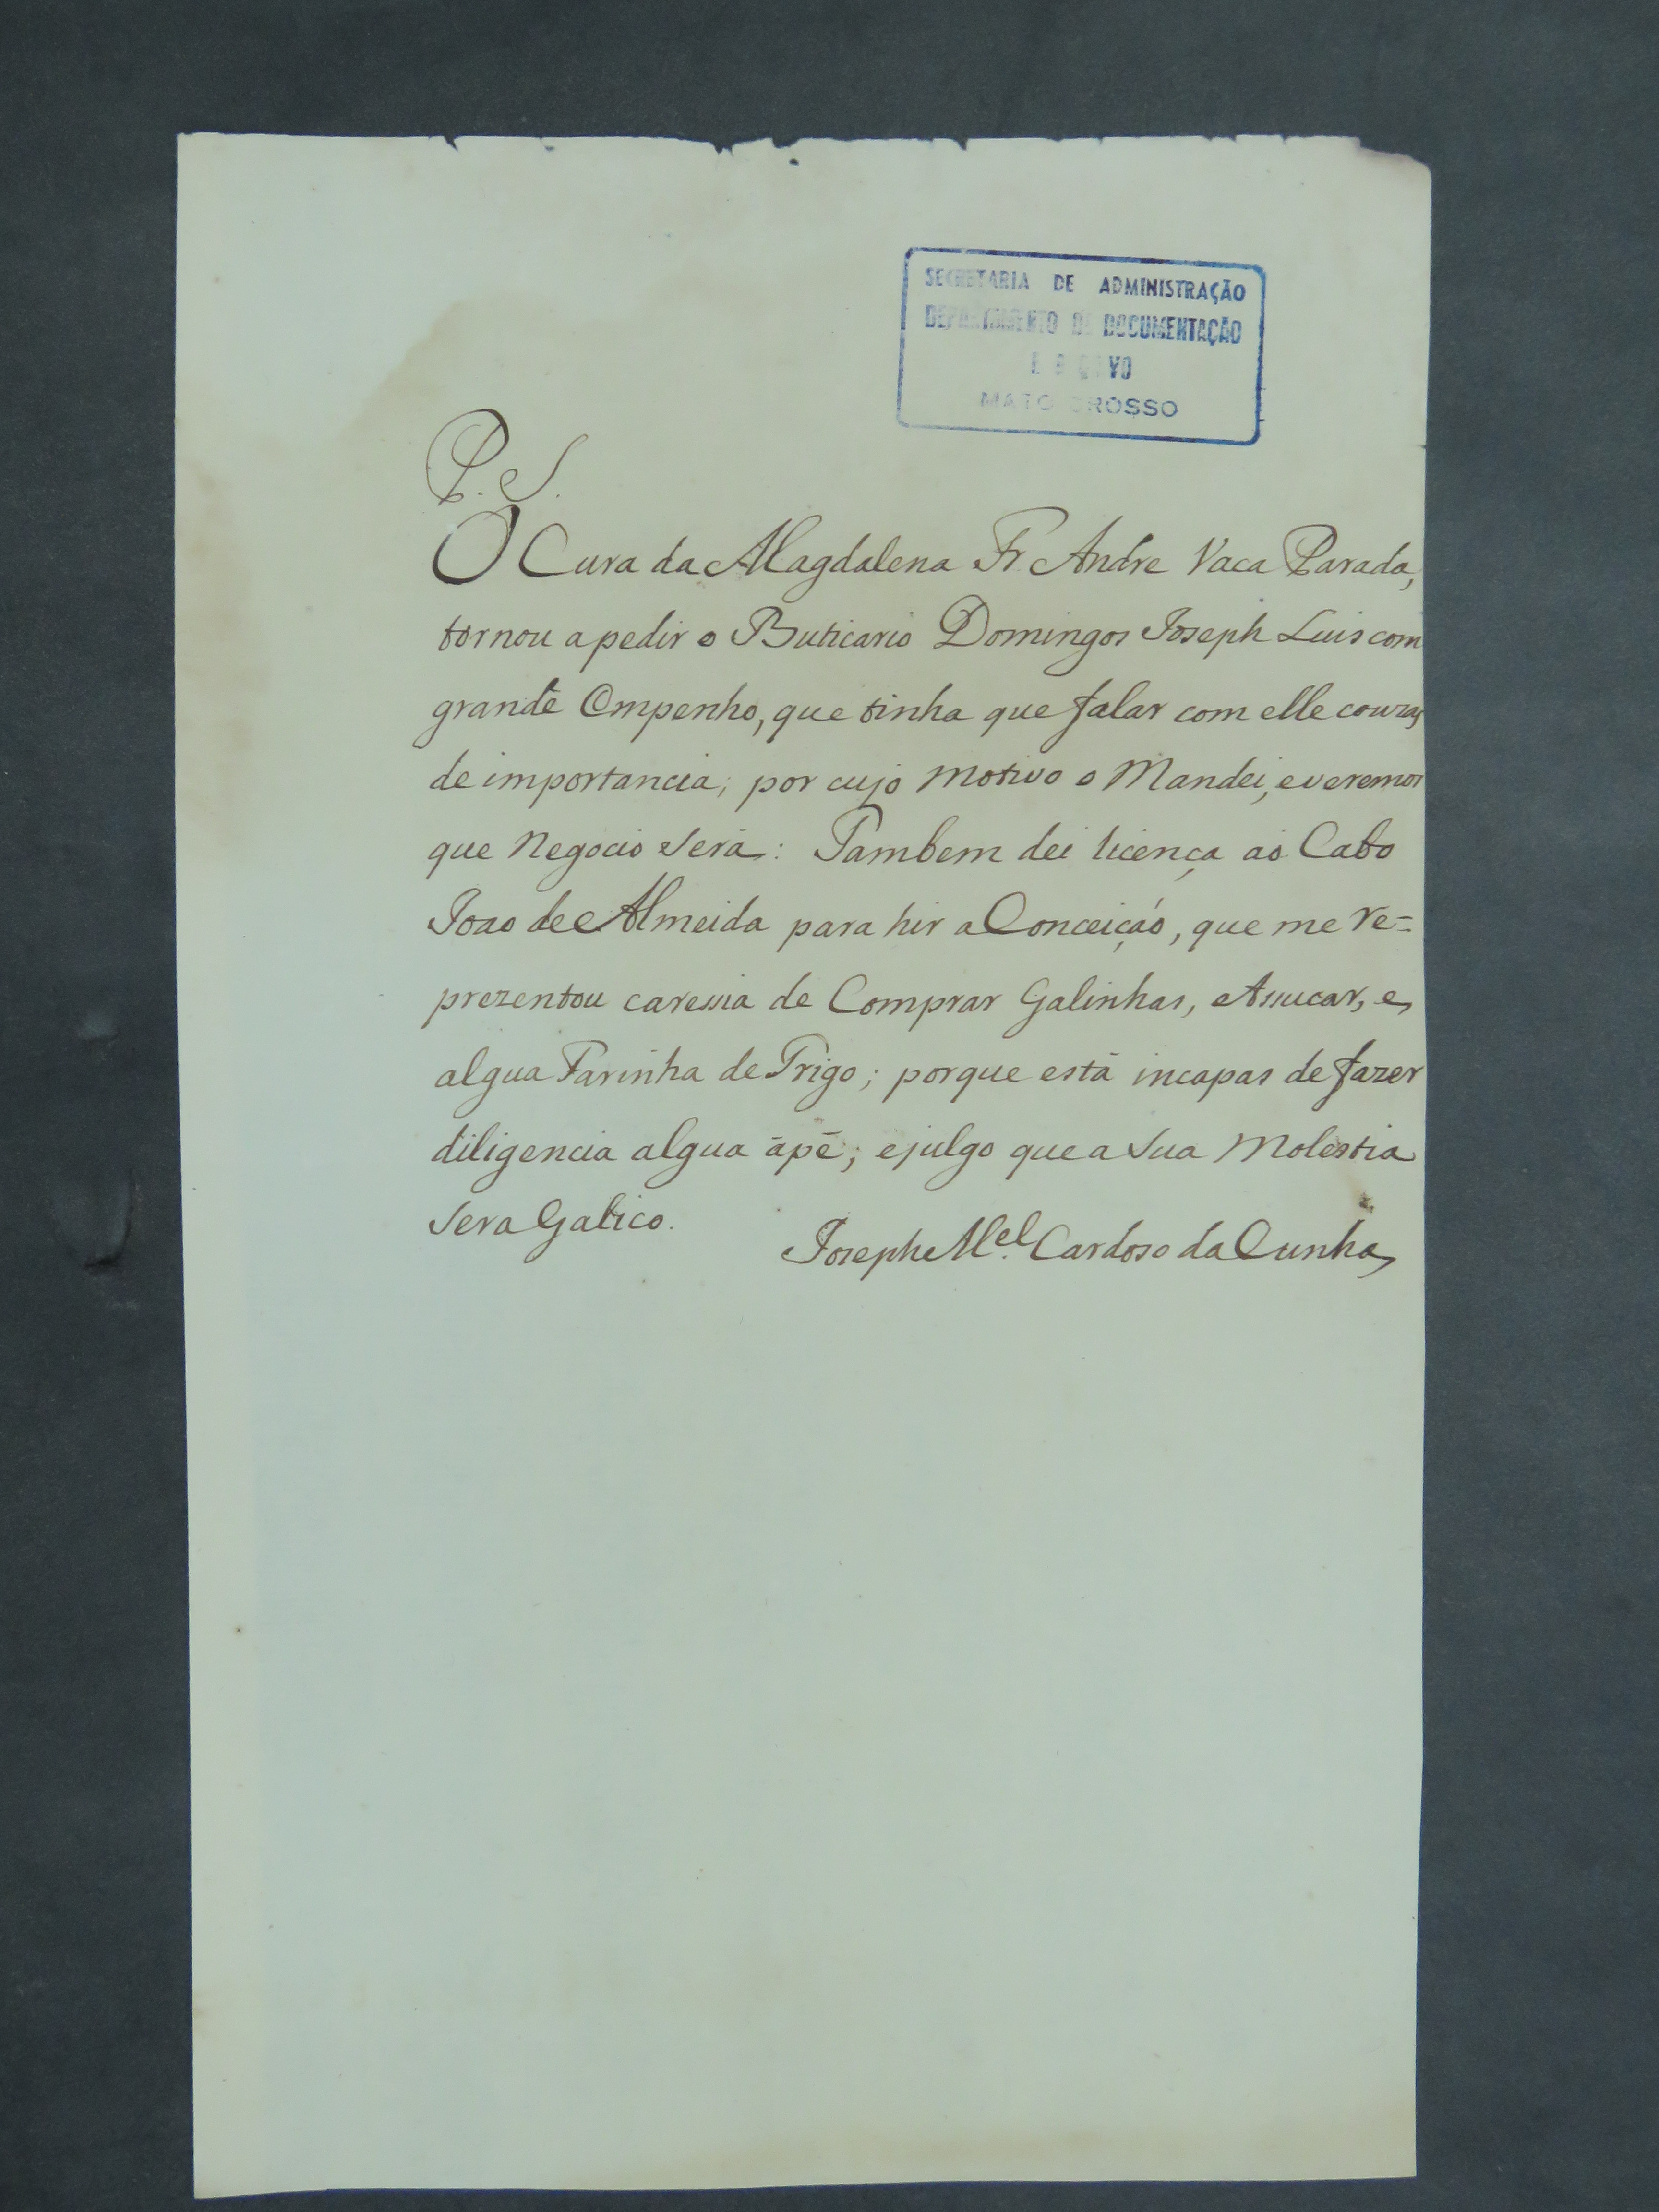 SECRETARIA DE ADMINISTRAÇÃO
DEPARTAMENTO DE DOCUMENTAÇÃO
E ARQUIVO
MATO GROSSO
P. S.
O Cura da Magdalena Fr. Andre Vaca Parada,
tornou apedir o Buticario Domingos Joseph Luis com
grande Empenho, que tinha que falar com elle couzas
de importancia; por cujo Motivo o Mandei, e veremos
que Negocio será: Tambem dei licença ao Cabo
Joao de Almeida para hir a Conceiçaó, que me re=
prezentou caressia de Comprar Galinhas, Assucar, e
algua Farinha de Trigo; porque está incapas de fazer
diligencia algua ápé; ejulgo que a Sua Molestia
Sera Galico.
Joseph M.el Cardoso da Cunha